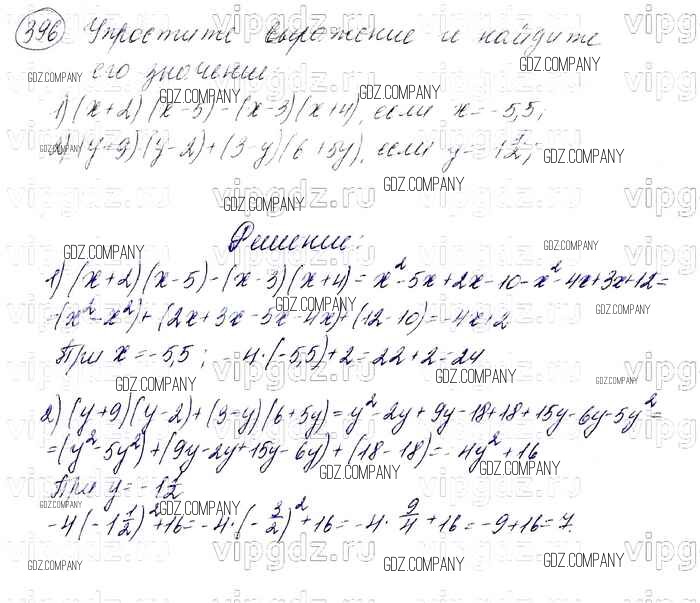 396 Упростите выражение и найдите
его значение:
1) (x+2)(x-5)-(x-3)(x+4), если x=-5,5;
2) (y+9)(y-2)+(3-y)(6+5y), если y=-1½;
Решение:
1) (x+2)(x-5)-(x-3)(x+4)=x²-5x+2x-10-x²-4x+3x+12=
=(x²-x²)+(2x+3x-5x-4x)+(12-10)=-4x+2
При x=-5,5; -4·(-5,5)+2=22+2=24
2) (y+9)(y-2)+(3-y)(6+5y)=y²-2y+9y-18+18+15y-6y-5y²=
=(y²-5y²)+(9y-2y+15y-6y)+(18-18)=-4y²+16
При y=-1½
-4(-1½)²+16=-4·(-3/2)²+16=-4·9/4+16=-9+16=7.
GDZ.COMPANY
vipgdz.ru